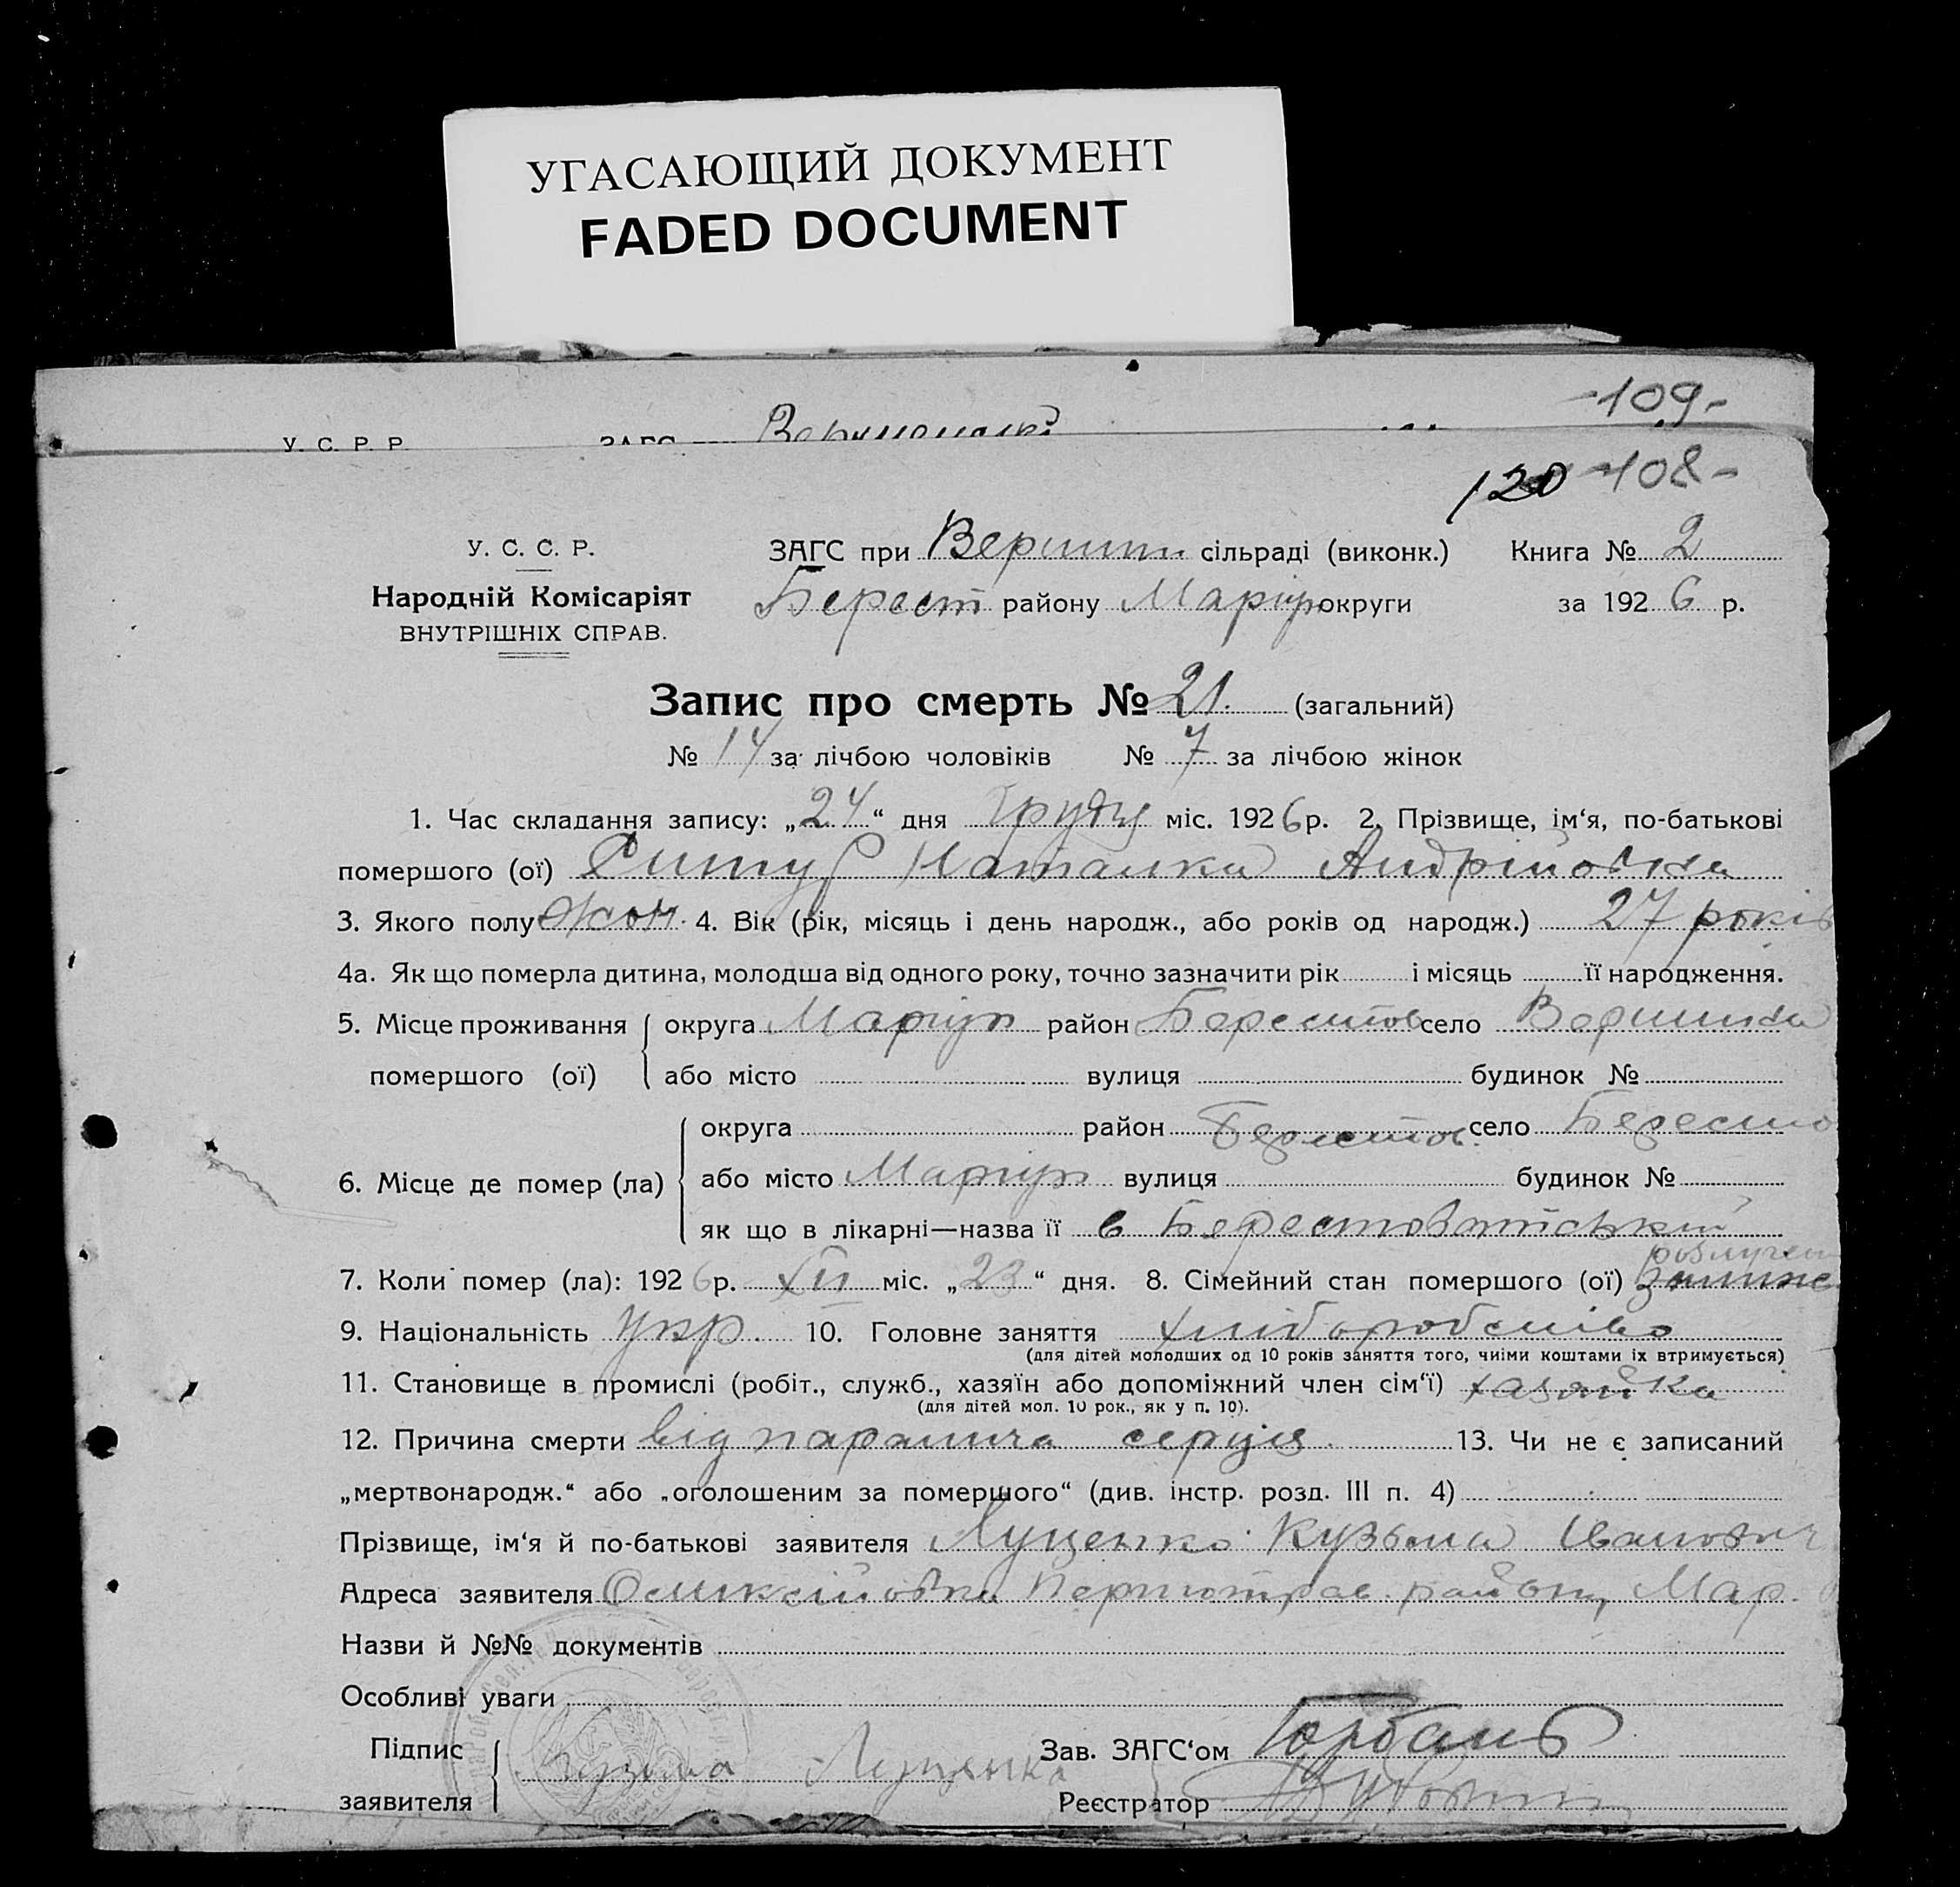 УГАСАЮЩИЙ ДОКУМЕНТ
FADED DOCUMENT
-109-
У. С. Р. Р.
120 -108-
У. С. С. Р. ЗАГС при Вершин сільраді (виконк.) Книга № 2
Народній Комісаріят Берест району Маріуп округи за 1926 р.
ВНУТРІШНІХ СПРАВ.
Запис про смерть № 21. (загальний)
№ 14 за лічбою чоловіків № 7 за лічбою жінок
1. Час складання запису: „24“ дня Грудня міс. 1926 р. 2. Прізвище, ім‘я, по-батькові
помершого (ої) Наталка Андрійовна
3. Якого полу жон. 4. Вік (рік, місяць і день народж., або років од народж.) 27 років
4а. Як що померла дитина, молодша від одного року, точно зазначити рік і місяць її народження.
5. Місце проживання округа Маріуп район Берестов село Вершина
помершого (ої) або місто вулиця будинок №
округа район Берестов. село Бересто
6. Місце де помер (ла) або місто Маріуп вулиця будинок №
як що в лікарні—назва її в Берестовській
7. Коли помер (ла): 1926 р. XII міс. „23“ дня. 8. Сімейний стан помершого (ої)
9. Національність Укр. 10. Головне заняття хліборобство
(для дітей молодших од 10 років заняття того, чиїми коштами їх втримується)
11. Становище в промислі (робіт., служб., хазяїн або допоміжний член сім‘ї) хазяйка
(для дітей мол. 10 рок., як у п. 10).
12. Причина смерти від параліча серця. 13. Чи не є записаний
„мертвонародж.“ або „оголошеним за помершого“ (див. інстр. розд. III п. 4)
Прізвище, ім‘я й по-батькові заявителя Луценко Кузьма Іванович
Адреса заявителя району, Мар.
Назви й №№ документів
Особливі уваги
Підпис Зав. ЗАГС‘ом Горбань
Кузьма Луценка
заявителя Реєстратор